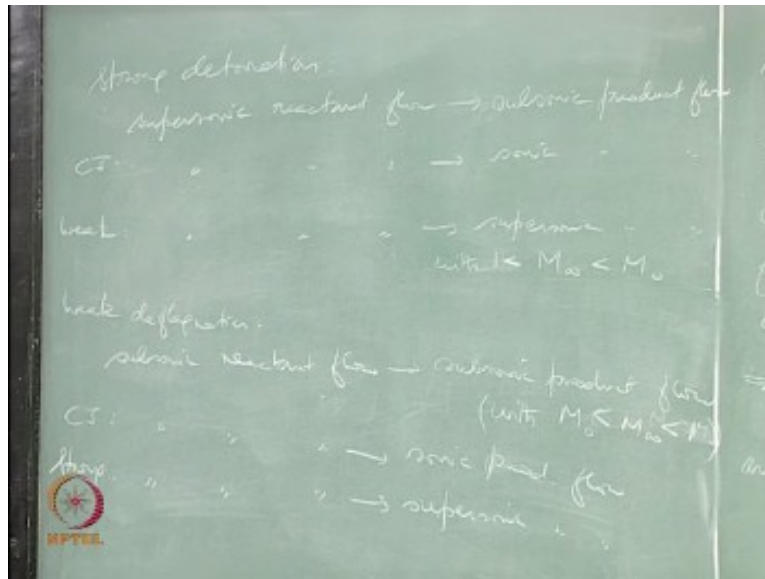 strong detonation:
supersonic reactant flow → subsonic product flow
CJ: " " " → sonic " "
weak: " " " → supersonic " "
with 1 < M∞ < M₀
weak deflagration:
subsonic reactant flow → subsonic product flow
(with M₀ < M∞ < 1)
CJ: " " " → sonic prod. flow
strong: " " " → supersonic " "
NPTEL